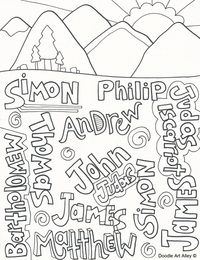 Simon
Philip
Andrew
Judas
Iscariot
Thomas
Bartholomew
John
Judas
James
Simon
James
Matthew
Doodle Art Alley ©